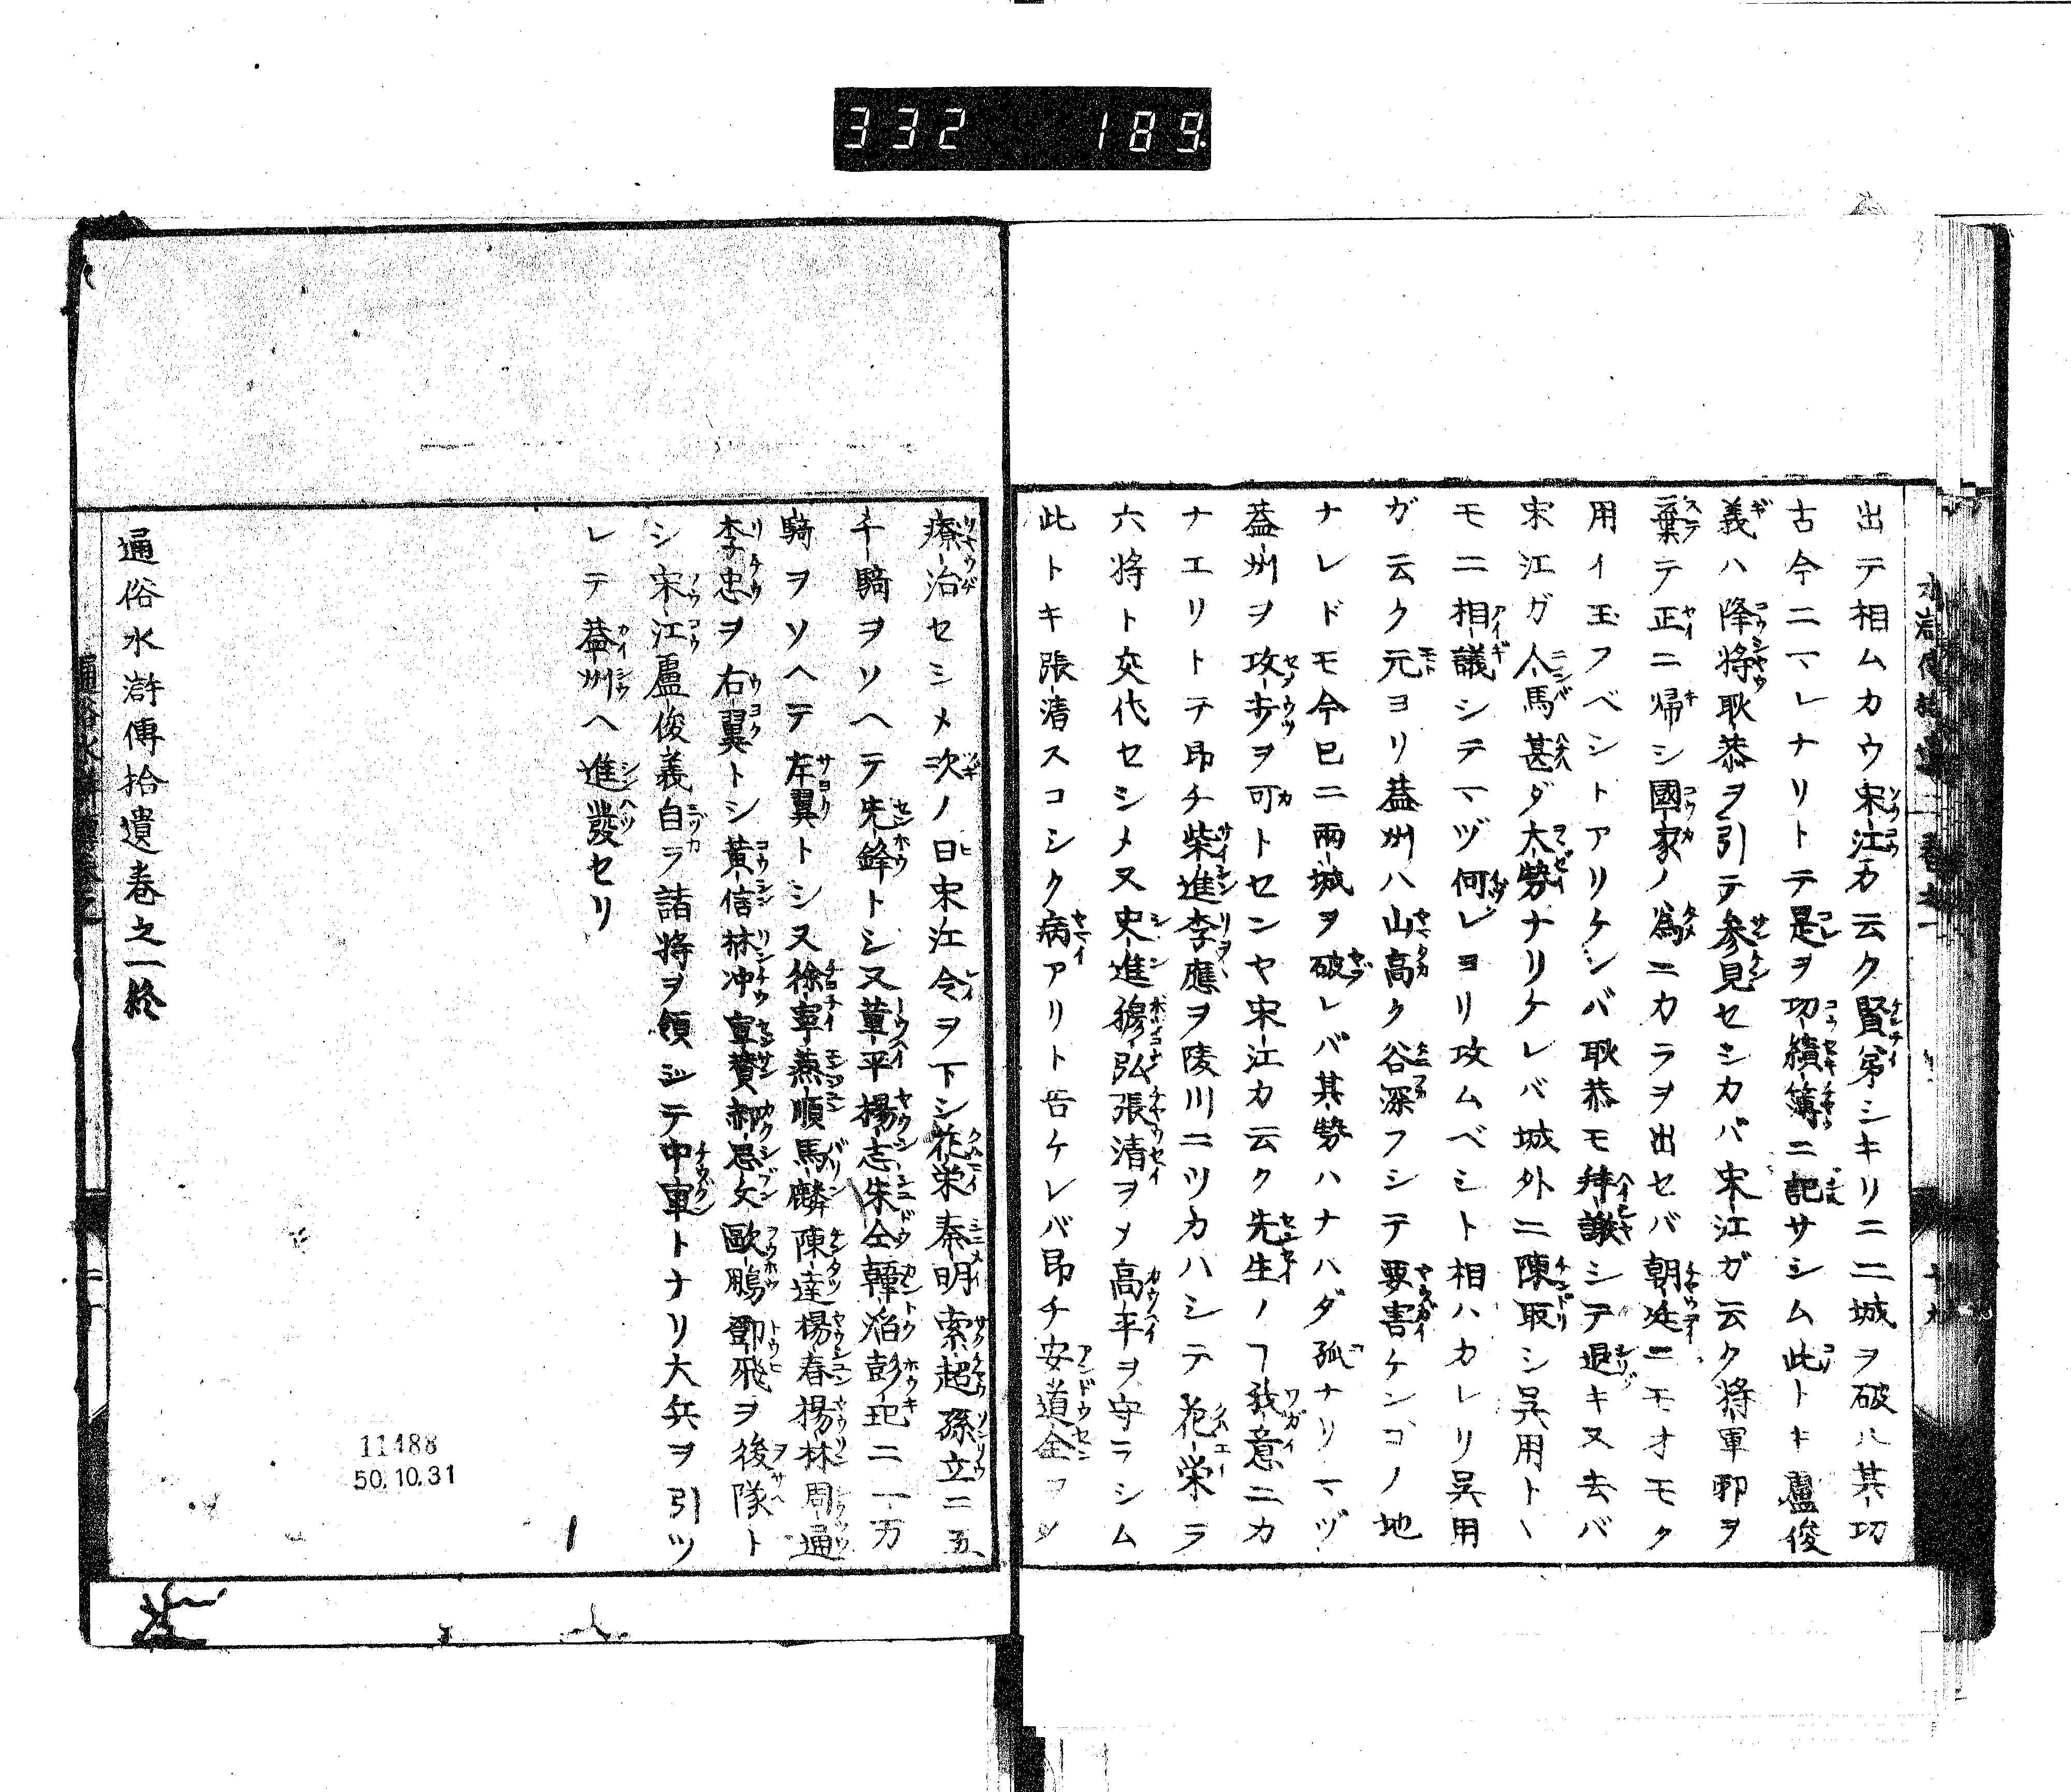 332 189
出テ相ムカウ宋江カ云ク賢弟シキリニ二城ヲ破ル其功
古今ニマレナリトテ是ヲ功績簿ニ記サシム此トキ盧俊
義ハ降将耿恭ヲ引テ参見セシカバ宋江ガ云ク将軍邪ヲ
棄テ正ニ帰シ國家ノ為ニカラヲ出セバ朝廷ニモオモク
用イ玉フベシトアリケシバ耿恭モ拝謝シテ退キヌ去バ
宋江ガ人馬甚ダ大勢ナリケレバ城外ニ陳取シ呉用トヽ
モニ相議シテマヅ何レヨリ攻ムベシト相ハカレリ呉用
ガ云ク元ヨリ葢州ハ山高ク谷深フシテ要害ケンコノ地
ナレドモ今巳ニ兩城ヲ破レバ其勢ハナハダ孤ナリマヅ
葢州ヲ攻歩ヲ可トセンヤ宋江カ云ク先生ノヿ我意ニカ
ナエリトテ昂チ柴進李應ヲ陵川ニツカハシテ花栄ラ
六将ト交代セシメ又史進穆弘張清ヲメ高平ヲ守ラシム
此トキ張清スコシク病アリト告ケレバ昂チ安道全ヲメ
療治セシメ次ノ日宋江令ヲ下シ花栄秦明索超孫立ニ五
千騎ヲソヘテ先鋒トシ又董平楊志朱仝韓滔彭玘ニ一万
騎ヲソヘテ左翼トシ又徐寧燕順馬麟陳達楊春楊林周通
李忠ヲ右翼トシ黄信林冲宣贊郝思文歐鵬鄧飛ヲ後隊ト
シ宋江盧俊義自ラ諸将ヲ領シテ中軍トナリ大兵ヲ引ツ
レテ葢州ヘ進發セリ
通俗水滸傳拾遺巻之一終
11488
50.10.31